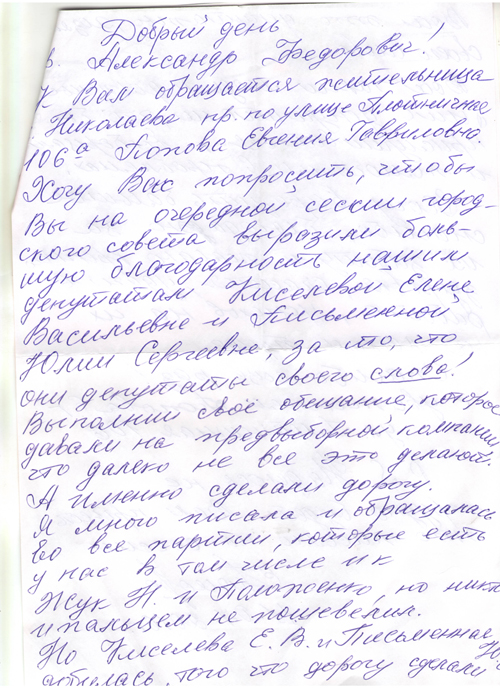 Добрый день
в. Александр Федорович!
К Вам обращается жительница
Николаева пр. по улице Плотничная
106а Попова Евгения Гавриловна.
Хочу Вас попросить, чтобы
Вы на очередной сессии город-
ского совета выразили боль-
шую благодарность нашим
депутатам Киселевой Елене
Васильевне и Письменной
Юлии Сергеевне, за то, что
они депутаты своего слова!
Выполнили своё обещание, которое
давали на предвыборной компании
что далеко не все это делают.
А именно сделали дорогу.
Я много писала и обращалась
во все партии, которые есть
у нас в том числе и к
Жук Н. и , но никто
и пальцем не пошевелил.
Но Киселева Е. В. и Письменная Ю.
добилась того что дорогу сделали